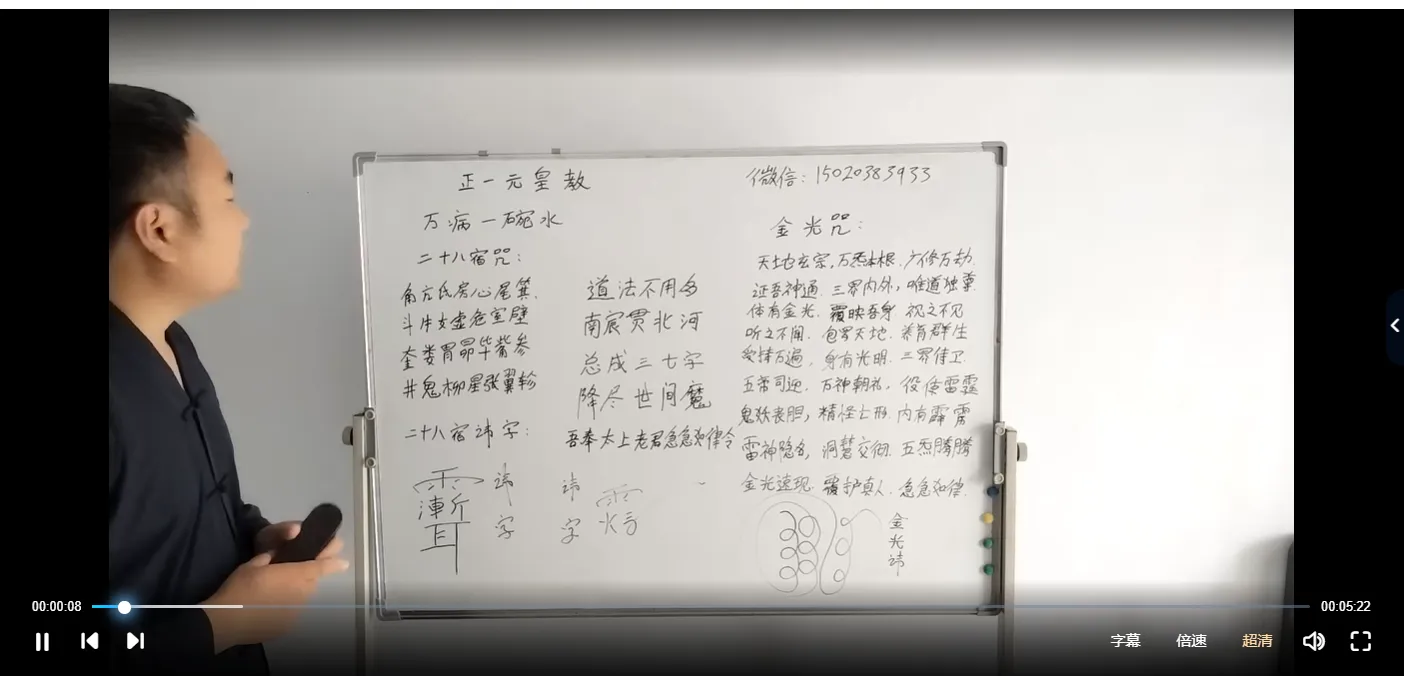 正一元皇教
微信：15020383933
万病一碗水
二十八宿咒：
角亢氐房心尾箕、
斗牛女虚危室壁
奎娄胃昴毕觜参
井鬼柳星张翼轸
二十八宿讳字：
讳
字
道法不用多
南宸贯北河
总成三七字
降尽世间魔
吾奉太上老君急急如律令
讳
字
金光咒：
天地玄宗，万炁本根，广修万劫
证吾神通．三界内外，唯道独尊
体有金光．覆映吾身．视之不见
听之不闻．包罗天地．养育群生
受持万遍，身有光明．三界侍卫
五帝司迎．万神朝礼，役使雷霆
鬼妖丧胆，精怪亡形．内有霹雳
雷神隐名，洞慧交彻．五炁腾腾
金光速现．覆护真人．急急如律．
金光讳
00:00:08
00:05:22
字幕
倍速
超清